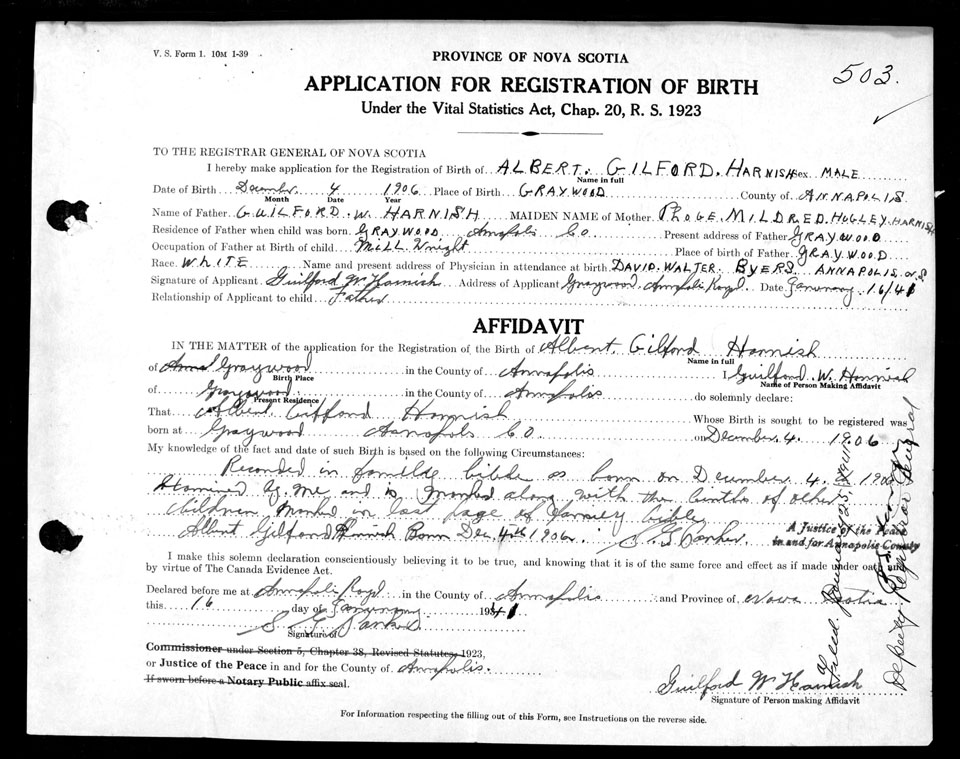 V. S. Form 1. 10M 1-39
PROVINCE OF NOVA SCOTIA
503.
APPLICATION FOR REGISTRATION OF BIRTH
Under the Vital Statistics Act, Chap. 20, R. S. 1923
TO THE REGISTRAR GENERAL OF NOVA SCOTIA
I hereby make application for the Registration of Birth of ALBERT. GILFORD. HARNISH Sex MALE
Name in full
Date of Birth December 4 1906 Place of Birth GRAYWOOD County of ANNAPOLIS
Month Day Year
Name of Father GUILFORD. W. HARNISH MAIDEN NAME of Mother PHOGE. MILDRED. HUGLEY. HARNISH
Residence of Father when child was born GRAYWOOD Annapolis Co Present address of Father GRAYWOOD
Occupation of Father at Birth of child Mill Wright Place of birth of Father GRAYWOOD
Race WHITE Name and present address of Physician in attendance at birth DAVID. WALTER. BYERS ANNAPOLIS N.S
Signature of Applicant Guilford W Harnish Address of Applicant Graywood Annapolis Royal. Date January 16/41
Relationship of Applicant to child Father
AFFIDAVIT
IN THE MATTER of the application for the Registration of the Birth of Albert Gilford Harnish
Name in full
of Graywood in the County of Annapolis I Guilford W. Harnish
Birth Place Name of Person Making Affidavit
of Graywood in the County of Annapolis do solemnly declare:
Present Residence
That Albert Gifford Harnish Whose Birth is sought to be registered was
born at Graywood Annapolis CO. on December 4. 1906
My knowledge of the fact and date of such Birth is based on the following Circumstances:
Recorded in bible as born on December 4. 1906
by me and is marked along with the births of other
children marked on last page of family bible
Albert Gilford Harnish Born Dec. 4th 1906. S. E. Parker. A Justice of the Peace
in and for Annapolis County
I make this solemn declaration conscientiously believing it to be true, and knowing that it is of the same force and effect as if made under oath and
by virtue of The Canada Evidence Act.
Declared before me at Annapolis Royal in the County of Annapolis and Province of Nova Scotia
this 16 day of January 1941
S E Parker
Signature of
Commissioner under Section 5, Chapter 38, Revised Statutes, 1923,
or Justice of the Peace in and for the County of Annapolis.
If sworn before a Notary Public affix seal.
Guilford W Harnish
Signature of Person making Affidavit
For Information respecting the filling out of this Form, see Instructions on the reverse side.
Filed January 25, 1941
Deputy Registrar General